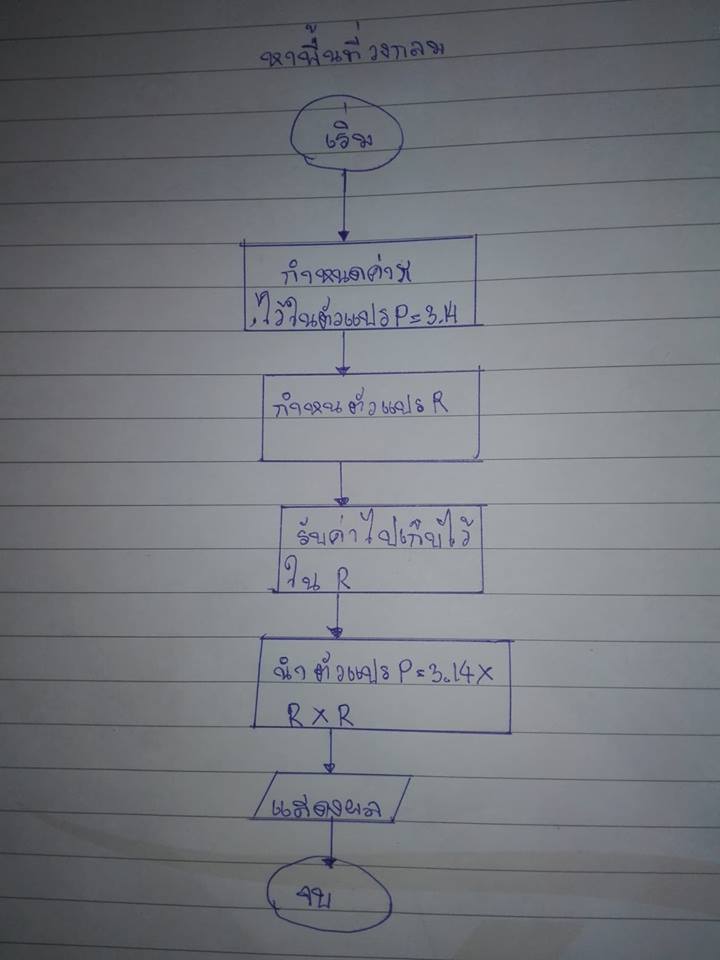 หาพื้นที่วงกลม
เริ่ม
กำหนดค่า π
ไว้ในตัวแปร P = 3.14
กำหน ตัวแปร R
รับค่าไปเก็บไว้
ใน R
นำ ตัวแปร P = 3.14 x
R x R
แสดงผล
จบ